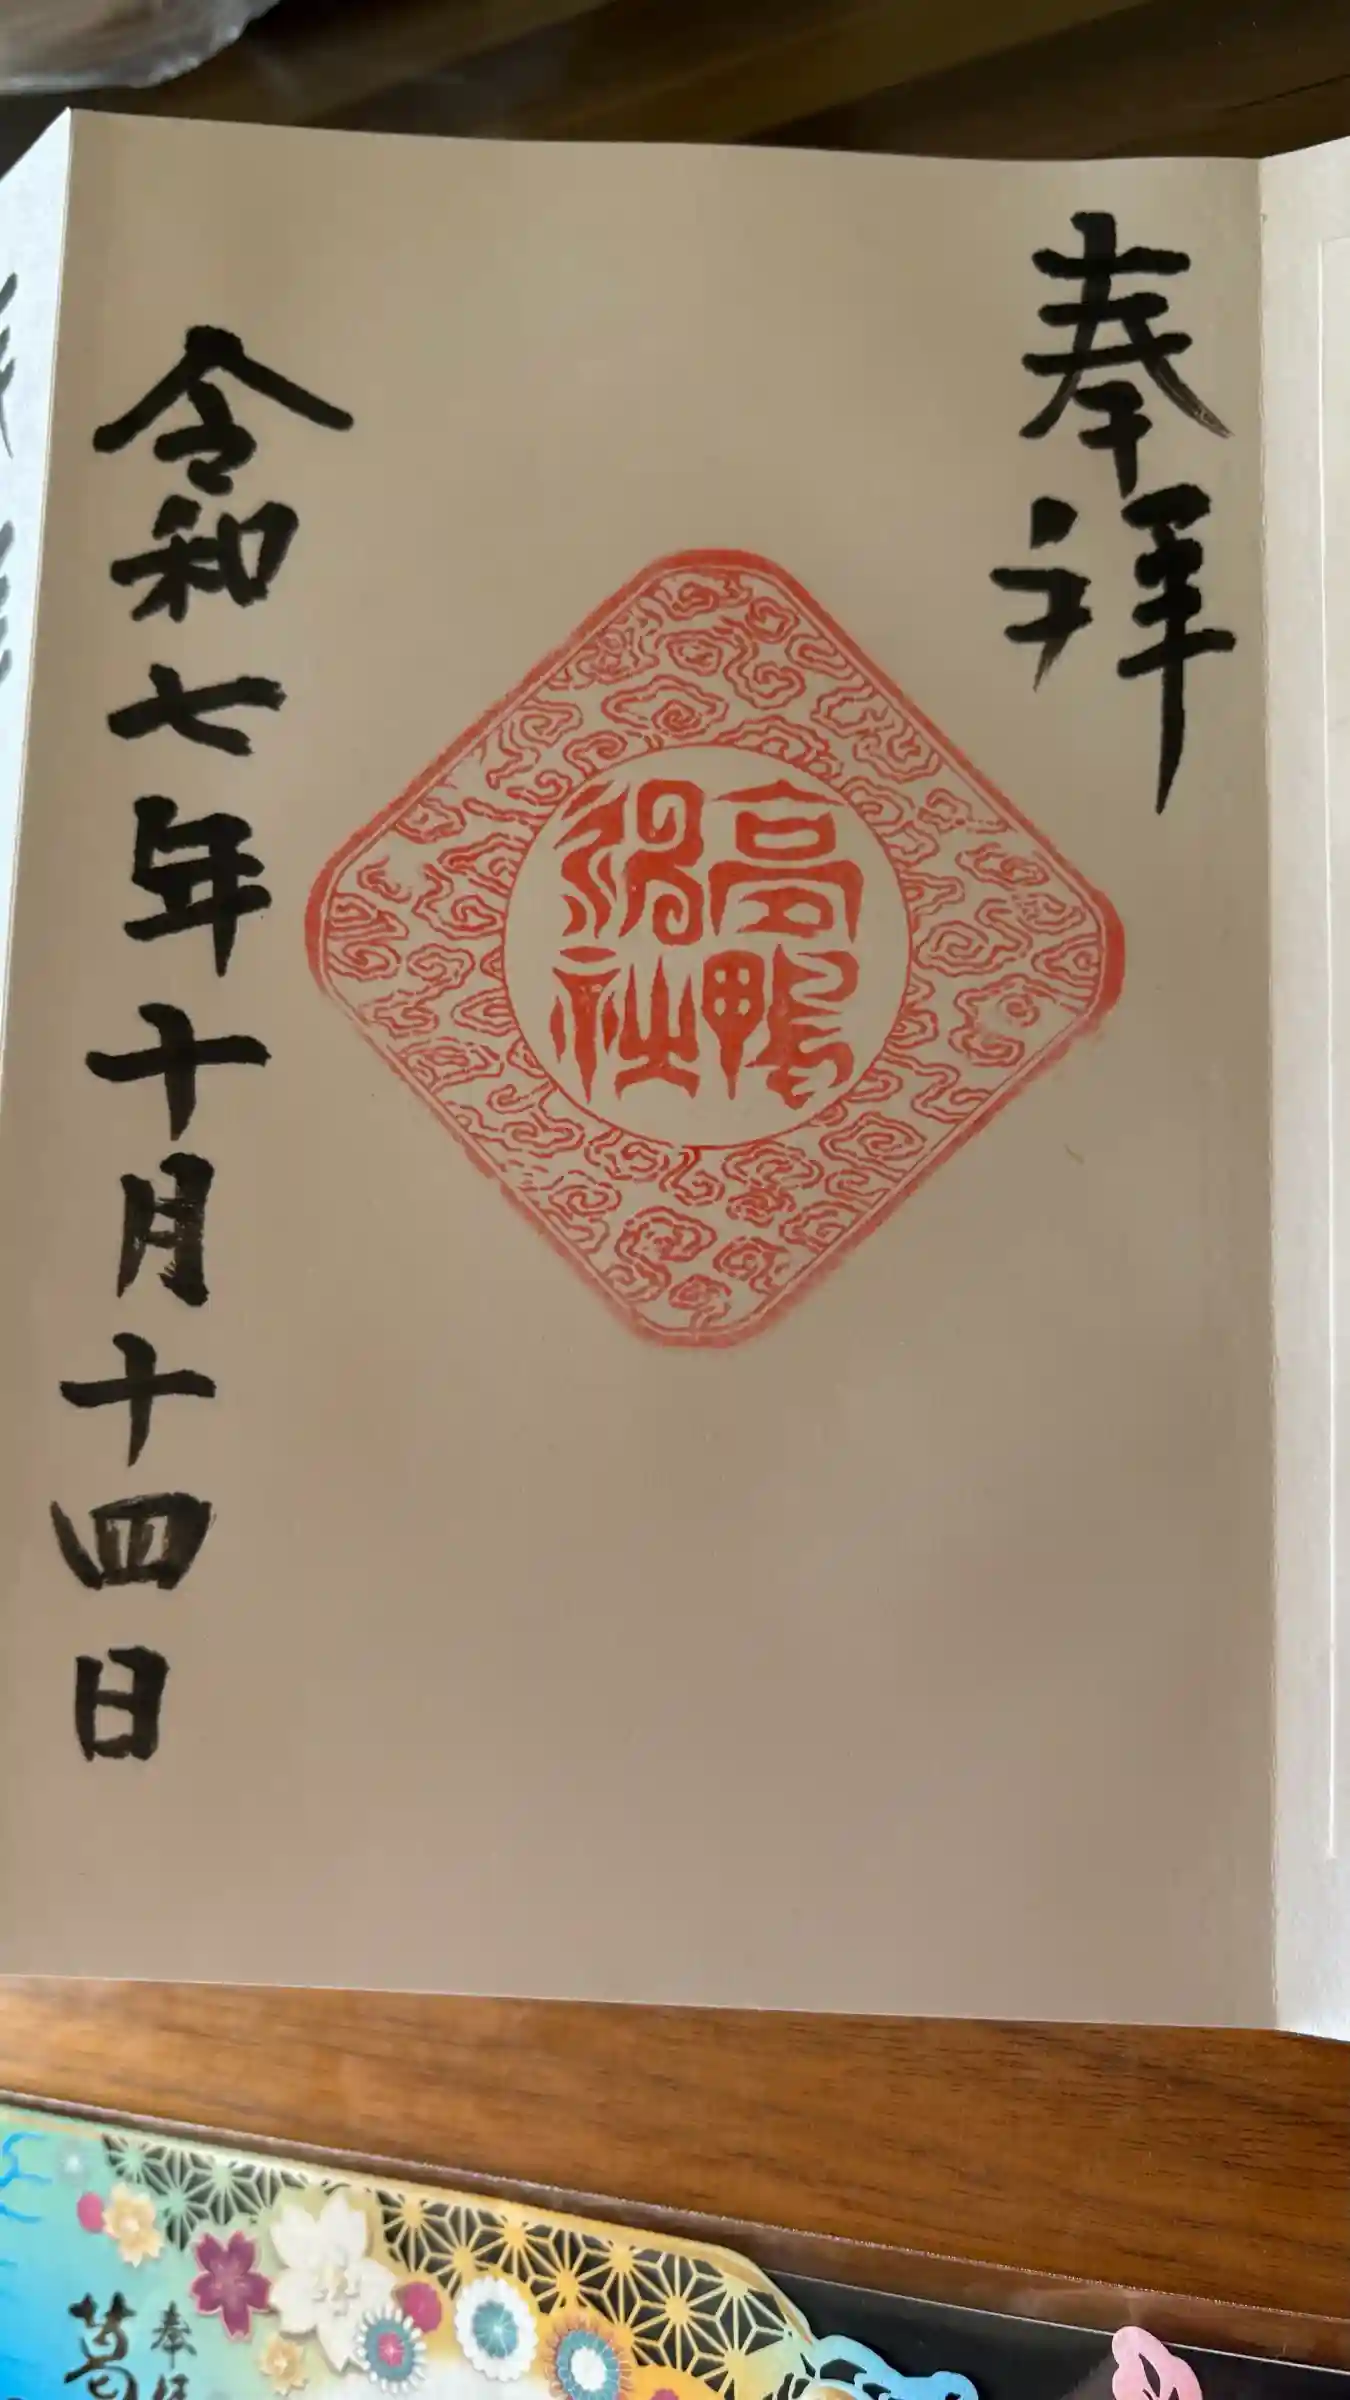 奉拝
高鴨
神社
令和七年十月十四日
奉拝
葛